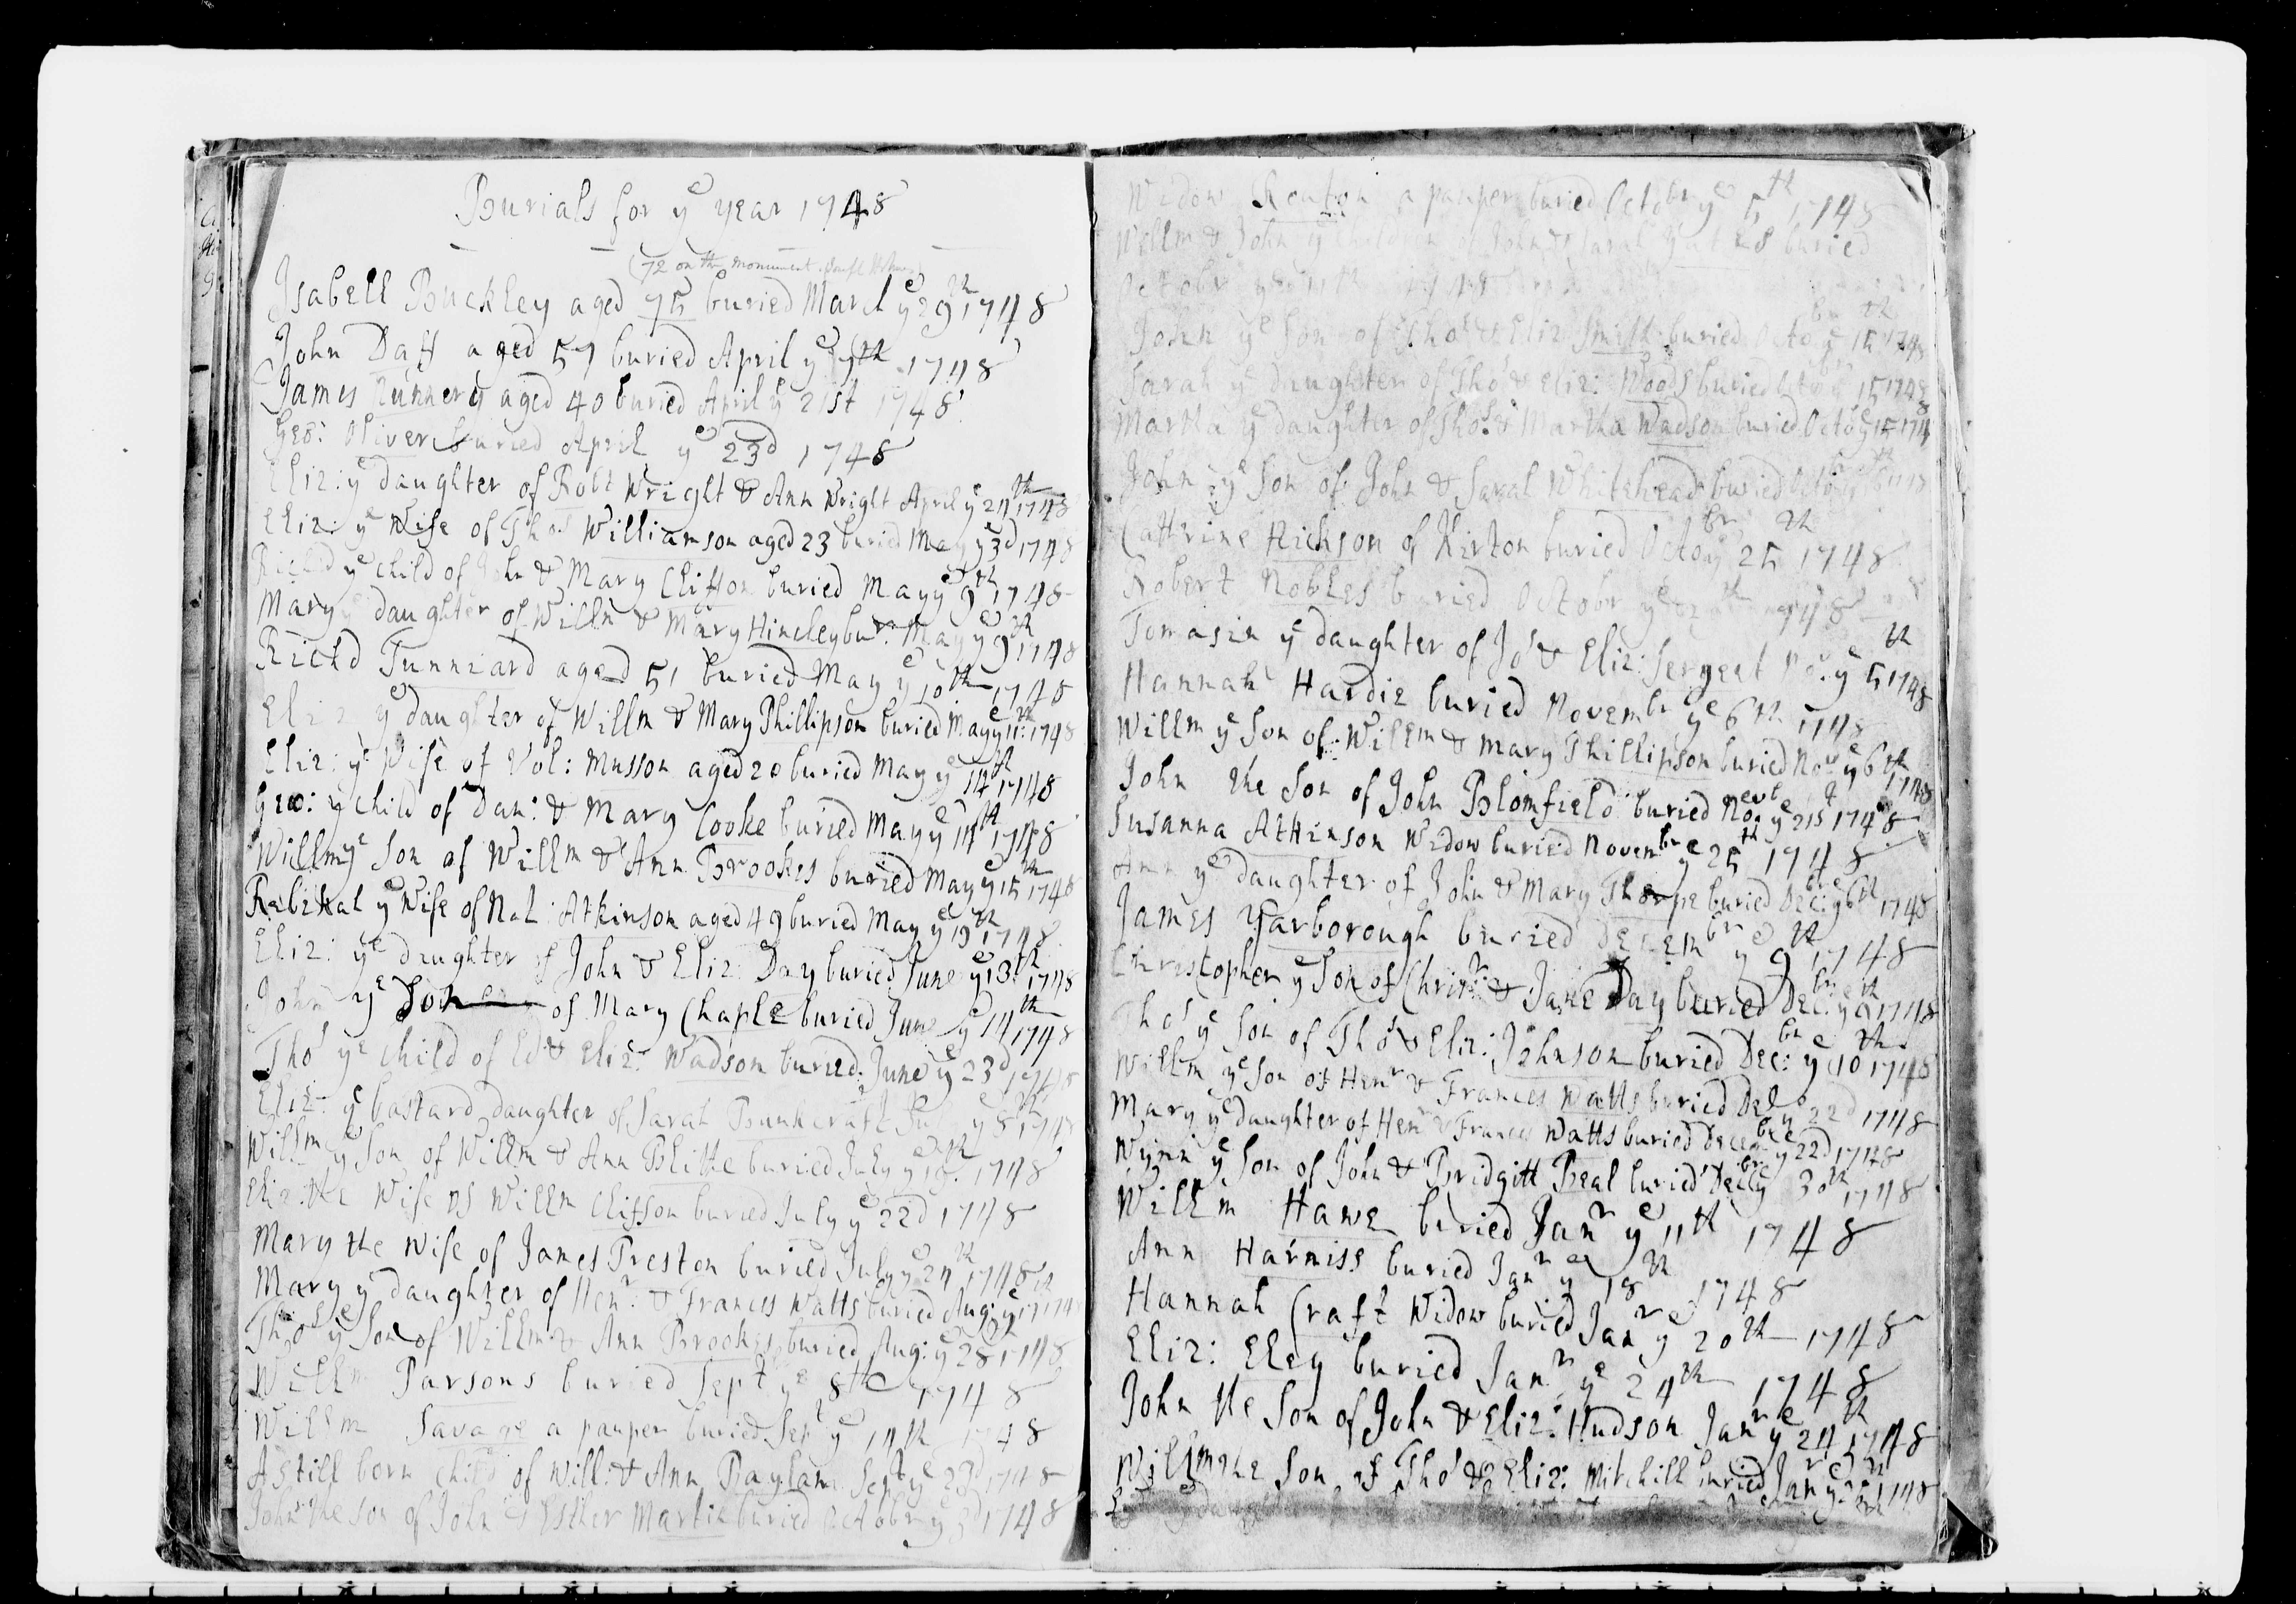 Burials for ye year 1748
(72 on the monument
Isabell Buckley aged 75 buried March ye 29th 1748
John Daff aged 57 buried April ye 7th 1748
James Nunnery aged 40 buried April ye 21st 1748
Geo: Oliver buried April ye 23d 1748
Eliz: ye daughter of Robt Wright & Ann Wright April ye 24th 1748
Eliz: ye Wife of Thos Williamson aged 23 buried May ye 3d 1748
Richd ye child of John & Mary Clifton buried May ye 9th 1748
Mary ye daughter of Willm & Mary Hincley bur: May ye 9th 1748
Richd Tunnard aged 51 buried May ye 10th 1748
Eliz ye daughter of Willm & Mary Phillipson buried May ye 11th 1748
Eliz: ye Wife of Vol: Musson aged 20 buried May ye 14th 1748
Geo: ye child of Dan: & Mary Cooke buried May ye 14th 1748
Willm ye Son of Willm & Ann Brookes buried May ye 15th 1748
Rebekah ye Wife of Nat: Atkinson aged 49 buried May ye 19th 1748
Eliz: ye daughter of John & Eliz: Day buried June ye 13th 1748
John ye Son of Mary Chaple buried June ye 14th 1748
Thos ye child of Ed & Eliz: Wadson buried June ye 23d 1748
Eliz: ye bastard daughter of Sarah ye 8th 1748
Willm ye Son of Willm & Ann Blithe buried July ye 18th 1748
Eliz: the Wife of Willm Clifton buried July ye 22d 1748
Mary the Wife of James Preston buried July ye 24th 1748
Mary ye daughter of Henr: & Frances Watts buried Aug: ye 17th 1748
Thos ye Son of Willm & Ann Brookes buried Aug: ye 28th 1748
Willm Parsons buried Sept ye 8th 1748
Willm Savage a pauper buried Sept ye 14th 1748
A still born child of Will: & Ann Raylan Sept ye 23d 1748
John the son of John & Esther Martin buried Octobr ye 3d 1748
Widow Renton a pauper buried Octobr ye 5th 1748
Willm & John ye Children of John & Sarah Yates buried
Octobr ye 11th 1748
John ye Son of Thos & Eliz: Smith buried Octobr ye 15th 1748
Sarah ye daughter of Thos & Eliz: Woods buried Octobr ye 15 1748
Martha ye daughter of Thos: & Martha Wadson buried Octo ye 15 1748
John ye Son of John & Sarah Whitehead buried Octobr ye
Cathrine Hickson of Kirton buried Octobr ye 25th 1748
Robert Nobles buried Octobr ye 1748
Tomasin ye daughter of Jos & Eliz: Sergent No: ye 5th 1748
Hannah Hardie buried Novembr ye 6th 1748
Willm ye Son of Willm & Mary Phillipson buried Nov ye 6th 1748
John the Son of John Blomfield buried Novbr ye 21st 1748
Susanna Atkinson Widow buried Novembr ye 25th 1748
Ann ye daughter of John & Mary Thorpe buried Decbr: ye 6th 1748
James Yarborough buried Decembr ye 9th 1748
Christopher ye Son of Chrisr: & Jane Day buried Decbr: ye 9th 1748
Thos ye Son of Thos & Eliz: Johnson buried Decbr: ye 10th 1748
Willm ye Son of Henr & Frances Watts buried Dec ye 22d 1748
Mary ye daughter of Henr & Frances Watts buried Decembr ye 22d 1748
Wynn ye Son of John & Bridgitt Beal buried Decbr ye 30th 1748
Willm Hawe buried Janr ye 11th 1748
Ann Harniss buried Janr ye 18th 1748
Hannah Craft Widow buried Janr ye 20th 1748
Eliz: Eley buried Janr ye 24th 1748
John the Son of John & Eliz: Hudson Janr ye 24th 1748
Willm the Son of Thos & Eliz: Mitchill buried Janr ye 25th 1748